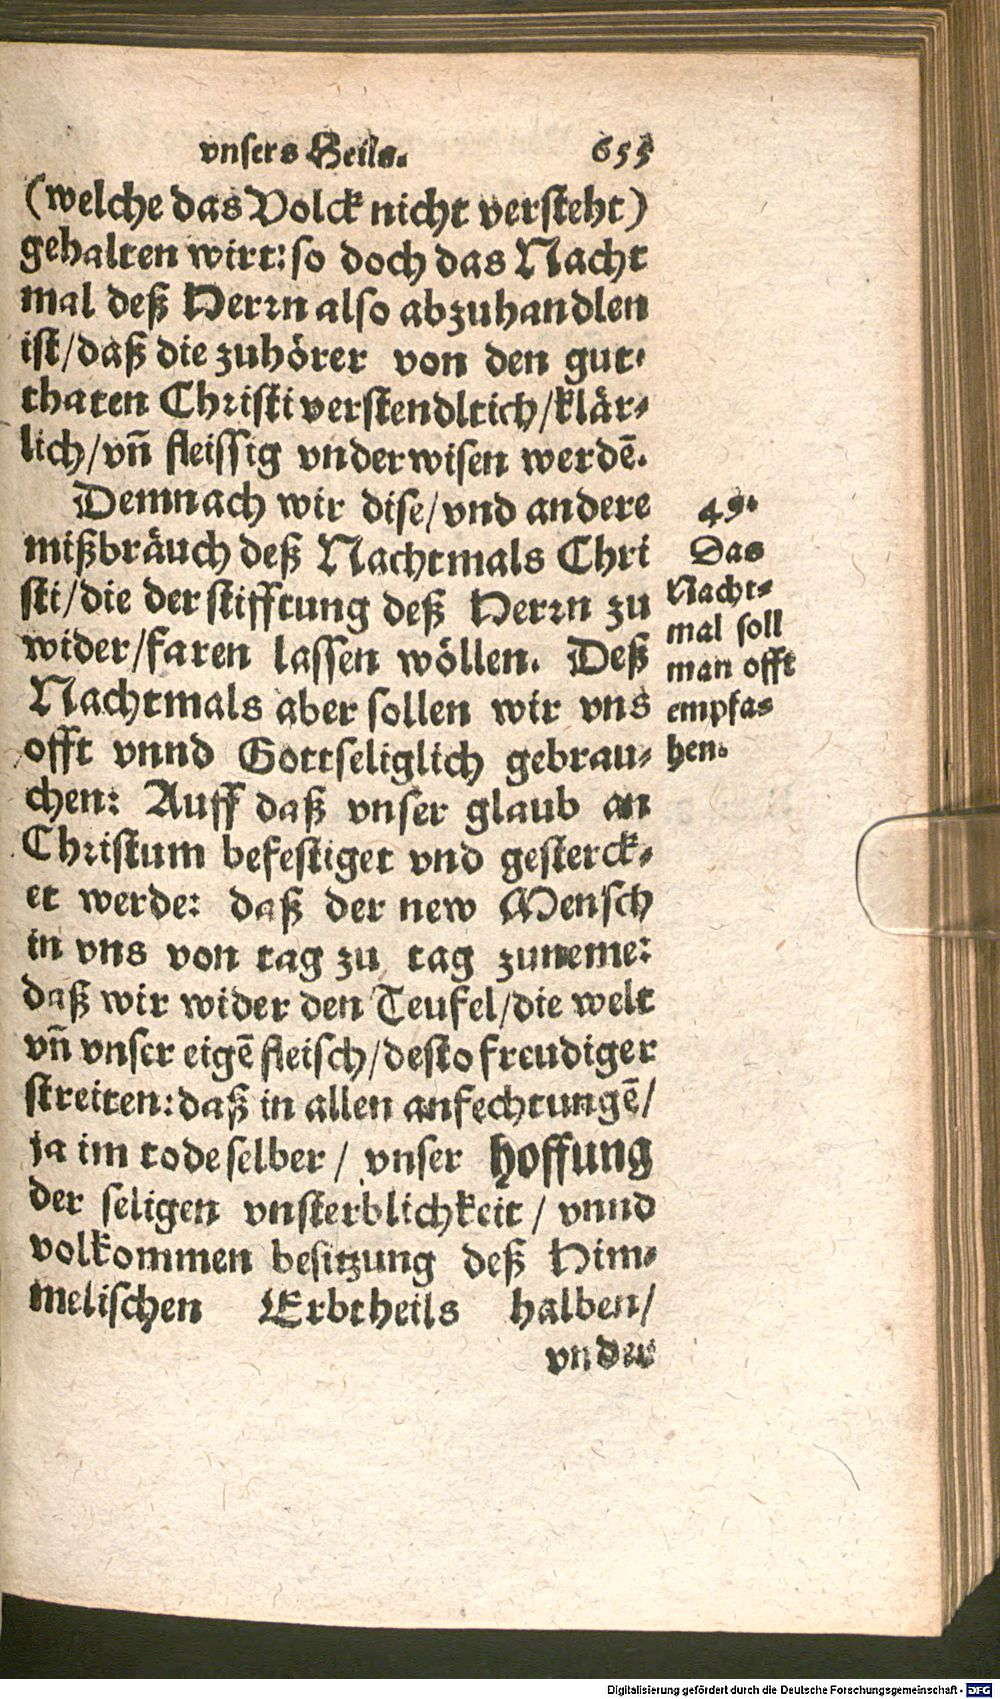 vnsers Heils. 655
(welche das Volck nicht versteht)
gehalten wirt: so doch das Nacht
mal deß Herrn also abzuhandlen
ist/daß die zuhörer von den gut-
thaten Christi verstendltich/klär-
lich/vñ fleissig vnderwisen werdē.
Demnach wir dise/vnd andere
mißbräuch deß Nachtmals Chri
sti/die der stifftung deß Herrn zu
wider/faren lassen wöllen. Deß
Nachtmals aber sollen wir vns
offt vnnd Gottseliglich gebrau-
chen: Auff daß vnser glaub an
Christum befestiget vnd gesterck-
et werde: daß der new Mensch
in vns von tag zu tag zuneme:
daß wir wider den Teufel/die welt
vñ vnser eigē fleisch/desto freudiger
streiten: daß in allen anfechtungē/
ja im tode selber/ vnser hoffung
der seligen vnsterblichkeit/ vnnd
volkommen besitzung deß Him-
melischen Erbtheils halben/
vnder
49.
Das
Nacht-
mal soll
man offt
empfa-
hen.
Digitalisierung gefördert durch die Deutsche Forschungsgemeinschaft - DFG